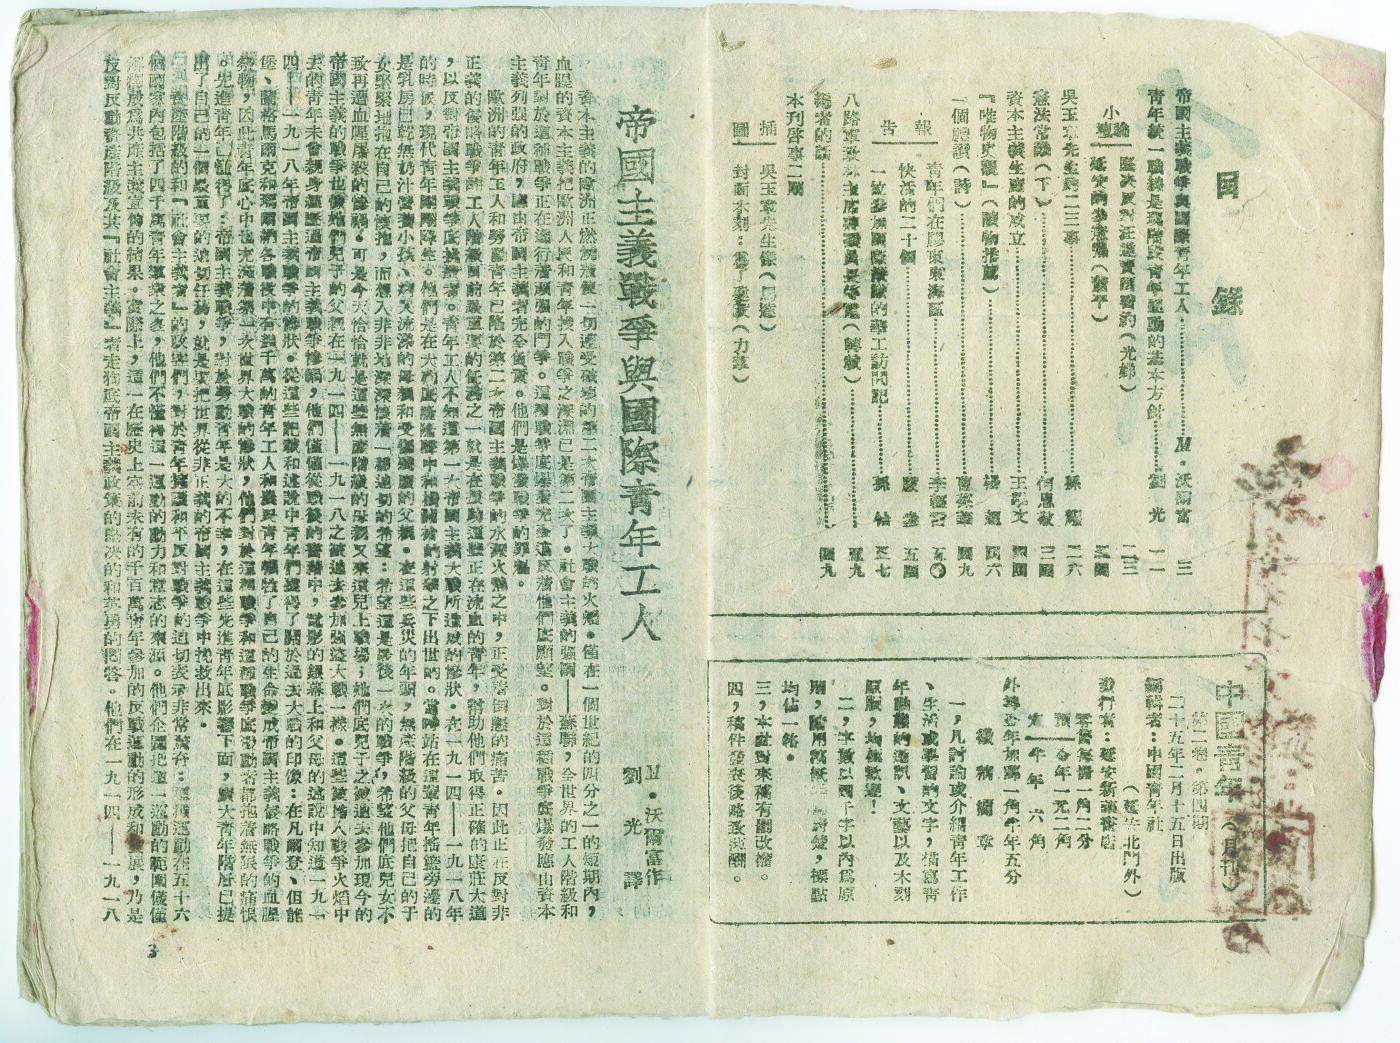 目錄
帝國主義戰爭與國際青年工人……M·沃爾富 三
青年統一戰線是現階段青年運動的基本方針……劉光 一一
小論壇
堅決反對汪逆賣國密約(光絳)……二三
延安的參議會(蕭平)……三四
吳玉章先生的二三事……
憲法常識(下)……
資本主義生產的成立……王學文
『唯物史觀』(讀物推薦)……
一個禮讚(詩)……
報告
青年們在膠東東海區……
快活的二十個……
一位參加國際縱隊的華工訪問記……
編者的話……
本刊啓事二則
插圖
吳玉章先生像(馬達)
封面木刻:(力羣)
中國青年(月刊)
第二卷·第四期
二十五年二月十五日出版
編輯者:中國青年社
(延安北門外)
發行者:延安新華書店
零售每冊一角二分
預定
全年一元二角
半年六角
外埠全年加郵一角半年五分
徵稿簡章
一,凡討論或介紹青年工作
、生活或學習的文字,描寫青
年動態的通訊、文藝以及木刻
原版,均極歡迎!
二,字數以四千字以內爲原
則,標點
均佔一格。
三,本社對來稿有刪改權。
四,稿件發表後略致薄酬。
帝國主義戰爭與國際青年工人
M·沃爾富作
劉光譯
資本主義的歐洲正燃燒着使一切遭受破壞的第二次帝國主義大戰的火燄。僅在一個世紀的四分之一的短期內,
血腥的資本主義把歐洲人民和青年拽入戰爭之深淵已是第二次了。社會主義的強國——蘇聯,全世界的工人階級和
青年對於這種戰爭正在進行着頑強的鬥爭。這種戰爭底爆發完全違反着他們底願望。對於這種戰爭底爆發應由資本
主義列強的政府,應由帝國主義者完全負責。他們是爆發戰爭的罪魁。
歐洲的青年工人和勞動青年已陷於第二次帝國主義戰爭的水深火熱之中,正受着倒懸的痛苦。因此正在反對非
正義的侵略戰爭的工人階級目前最重要的任務之一就是在發動這些正在流血的青年,幫助他們取得正確的康莊大道
,以反對帝國主義戰爭底挑撥者。青年工人不知道第一次帝國主義大戰所造成的慘狀。在一九一四——一九一八年
的時候,現代青年剛剛降生。他們是在大砲底隆隆聲中和機關槍的射擊之下出世的。當時站在這輩青年搖籃旁邊的
是乳房已乾無奶汁濟養小孩、病又流淚的母親和受傷殘廢的父親。在這些兵災的年頭,無產階級的父母把自己的子
女緊緊地抱在自己的懷抱,而想入非非地深深懷着一種迫切的希望:希望這是最後一次的戰爭,希望他們底兒女不
致再遭血腥屠殺的慘禍。可是今天恰恰就是這些無產階級的母親又來送兒上戰場;她們底兒子之被迫去參加現今的
帝國主義的戰爭也像她們兒子的父親在一九一四——一九一八之被迫去參加強盜大戰一樣。這些被捲入戰爭火焰中
去的青年未曾親身經歷過帝國主義戰爭慘禍,他們僅僅從戰後的書籍中,電影的銀幕上和父母的述說中知道一九一
四——一九一八年帝國主義戰爭的慘狀。從這些記載和述說中青年們獲得了關於過去大戰的印像:在凡爾登、伯能
堡、蘭格馬爾克和瑪爾納各戰役中有幾千萬的青年工人和農民青年犧牲了自己的生命變成帝國主義侵略戰爭的血腥
祭物,因此青年底心中也充滿着第一次世界大戰的慘狀,他們對於這種戰爭和這種戰爭底發動者都抱着無限的痛恨
。先進青年已懂得了:帝國主義戰爭,對於勞動青年是大的不幸,在這些先進青年底影響下面,廣大青年階層已提
出了自己的一個最重要的迫切任務,就是要把世界從非正義的帝國主義戰爭中挽救出來。
資產階級的和『社會主義者』的政客們,對於青年擁護和平反對戰爭的迫切表示非常驚奇:這種運動在五十六
個國家內包括了四千萬青年羣衆之多,他們不懂得這一運動的動力和意志的來源。他們企圖把這一運動的範圍僅僅
解釋成爲共產主義宣傳的結果。實際上,這一在歷史上空前未有的千百萬青年參加的反戰運動的形成和發展,乃是
反對反動資產階級及其『社會主義』者走狗底帝國主義政策的堅決的和英勇的回答。他們在一九一四——一九一八
3